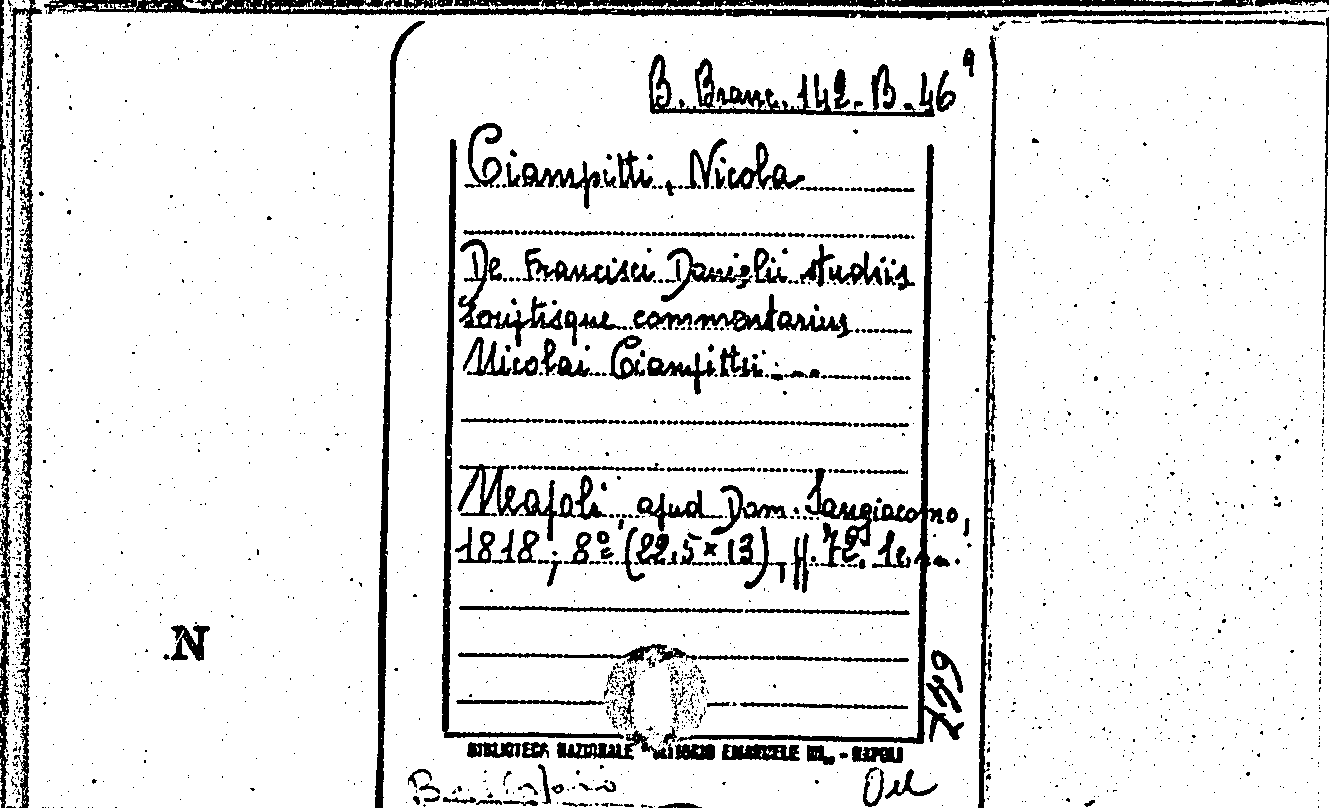 B. Branc. 142-B-46⁹
Ciampitti, Nicola
De Francisci Danielii studiis
scriptisque commentarius
Nicolai Ciampitti...
Neapoli, apud Dom. Sangiacomo,
1818; 8º (22,5×13), pp. 72. leg.
N
BIBLIOTECA NAZIONALE "VITTORIO EMANUELE III„ - NAPOLI